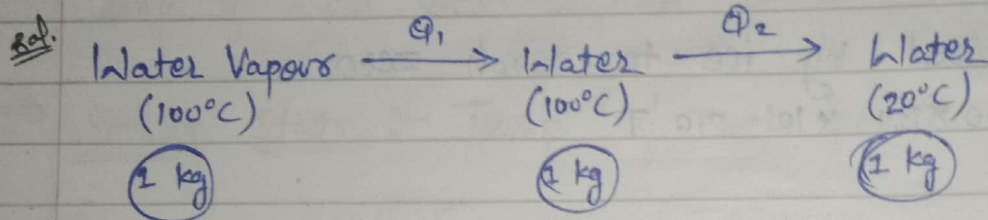 Sol. Water Vapour Q₁ → Water Q₂ → Water
(100°C) (100°C) (20°C)
1 kg 1 kg 1 kg